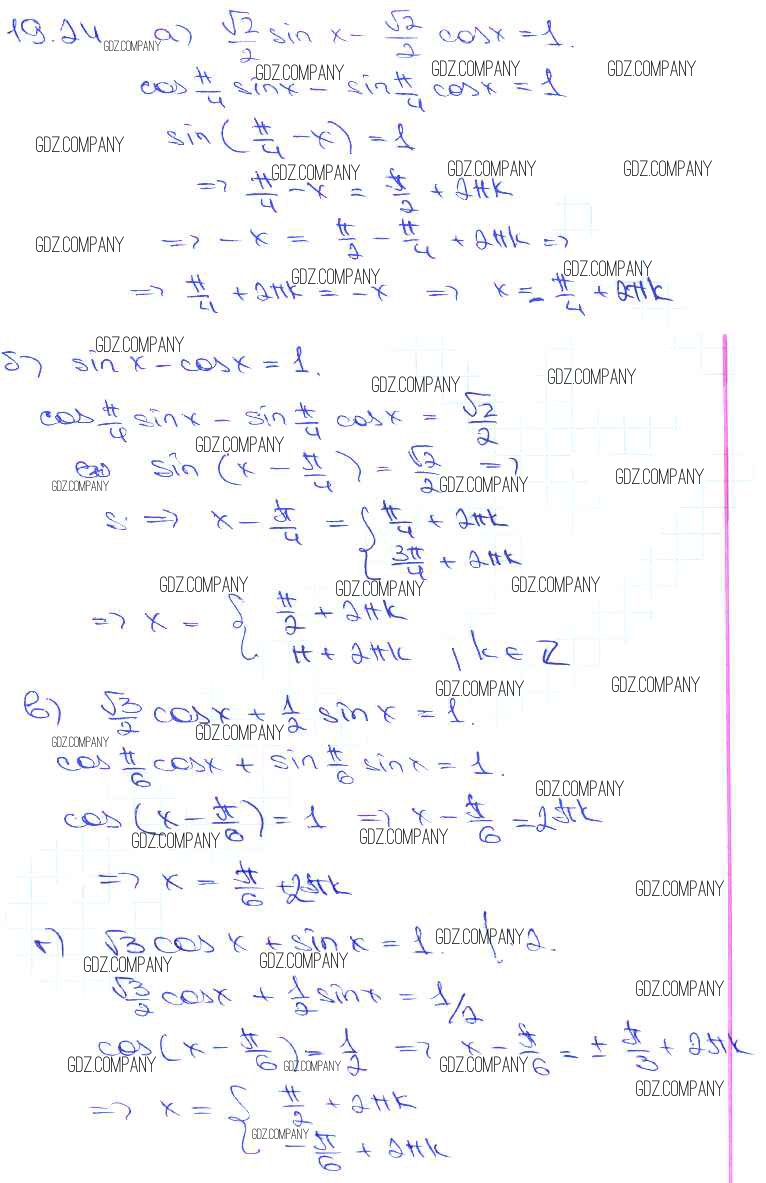 19.24 GDZ.COMPANY а) √2/2 sin x - √2/2 cosx = 1.
GDZ.COMPANY GDZ.COMPANY GDZ.COMPANY
cos π/4 sinx - sin π/4 cosx = 1
GDZ.COMPANY sin(π/4 - x) = 1
GDZ.COMPANY GDZ.COMPANY GDZ.COMPANY
=> π/4 - x = π/2 + 2πk
GDZ.COMPANY => -x = π/2 - π/4 + 2πk =>
GDZ.COMPANY GDZ.COMPANY
=> π/4 + 2πk = -x => x = -π/4 + 2πk
GDZ.COMPANY
б) sin x - cosx = 1.
GDZ.COMPANY GDZ.COMPANY
cos π/4 sinx - sin π/4 cosx = √2/2
GDZ.COMPANY
sin(x - π/4) = √2/2 =>
GDZ.COMPANY GDZ.COMPANY GDZ.COMPANY
=> x - π/4 = { π/4 + 2πk
3π/4 + 2πk
GDZ.COMPANY GDZ.COMPANY GDZ.COMPANY
=> x = { π/2 + 2πk
π + 2πk , k ∈ Z
GDZ.COMPANY GDZ.COMPANY
в) √3/2 cosx + 1/2 sinx = 1.
GDZ.COMPANY GDZ.COMPANY
cos π/6 cosx + sin π/6 sinx = 1.
GDZ.COMPANY
cos(x - π/6) = 1 => x - π/6 = 2πk
GDZ.COMPANY GDZ.COMPANY
=> x = π/6 + 2πk
GDZ.COMPANY
г) √3 cosx + sinx = 1. GDZ.COMPANY 2.
GDZ.COMPANY GDZ.COMPANY
√3/2 cosx + 1/2 sinx = 1/2
GDZ.COMPANY
cos(x - π/6) = 1/2 => x - π/6 = ± π/3 + 2πk
GDZ.COMPANY GDZ.COMPANY GDZ.COMPANY
GDZ.COMPANY
=> x = { π/2 + 2πk
GDZ.COMPANY
-π/6 + 2πk